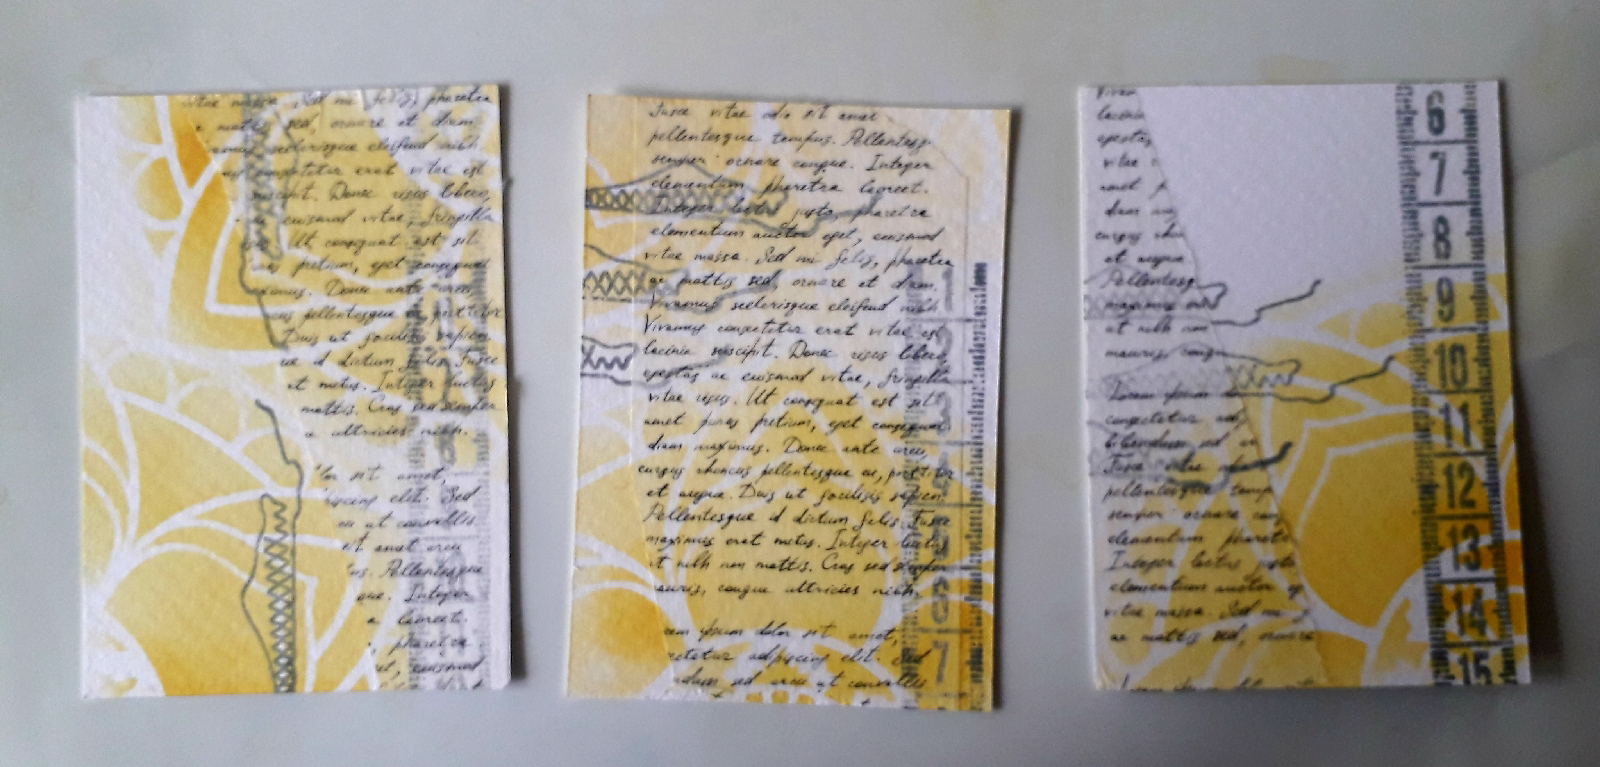 vitae massa. Sed mi felis, pharetra
mattis sed, ornare et diam.
scelerisque eleifend nibh
consectetur erat vitae est
suscipit. Donec risus libero,
ac euismod vitae, fringilla
Ut consequat est sit
pretium, eget consequat
maximus. Donec ante arcu,
pellentesque porttitor
Duis ut facilisis sapien.
id dictum felis. Fusce
et metus. Integer luctus
mattis. Cras sed semper
ultricies nibh.
sit amet,
elit. Sed
ut convallis
sit amet arcu
Pellentesque
Integer
laoreet.
pharetra
euismod
Fusce vitae odio sit amet
pellentesque tempus. Pellentesque
semper ornare congue. Integer
elementum pharetra laoreet.
Integer luctus justo, pharetra
elementum auctor eget, euismod
vitae massa. Sed mi felis, pharetra
ac mattis sed, ornare et diam.
Vivamus scelerisque eleifend nibh
Vivamus consectetur erat vitae est
lacinia suscipit. Donec risus libero,
egestas ac euismod vitae, fringilla
vitae risus. Ut consequat est sit
amet purus pretium, eget consequat
diam maximus. Donec ante arcu,
cursus rhoncus pellentesque ac, porttitor
et augue. Duis ut facilisis sapien.
Pellentesque id dictum felis. Fusce
maximus erat metus. Integer luctus
ut nibh non mattis. Cras sed semper
mauris, congue ultricies nibh.
ipsum dolor sit amet,
adipiscing elit. Sed
sed arcu ut convallis
1
2
3
4
5
6
7
Vivam
lacinia
egestas
vitae
amet
diam
cursus
et augue
Pellentesq
maximus
ut nibh non
mauris, congu
Lorem ipsum
consectetur adi
bibendum sed
Fusce vitae
pellentesque temp
semper ornare con
elementum pharetr
Integer luctus justo
elementum auctor eg
vitae massa. Sed mi
ac mattis sed, ornare
6
7
8
9
10
11
12
13
14
15